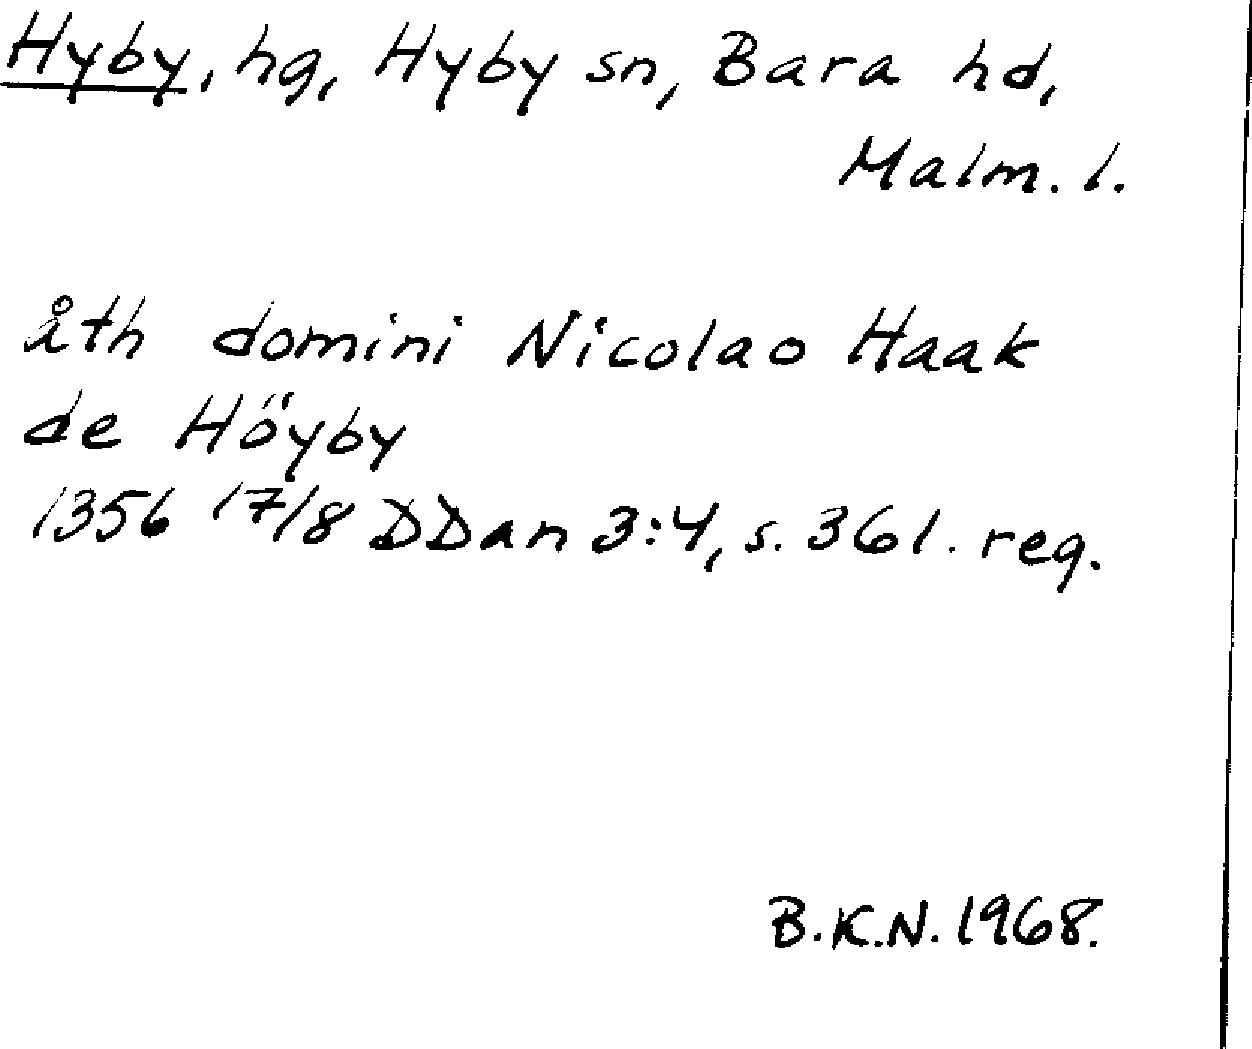 Hyby, hg, Hyby sn, Bara hd,
Malm. l.
åth domini Nicolao Haak
de Höyby
1356 17/8 DDan 3:4, s. 361. reg.
B.K.N. 1968.